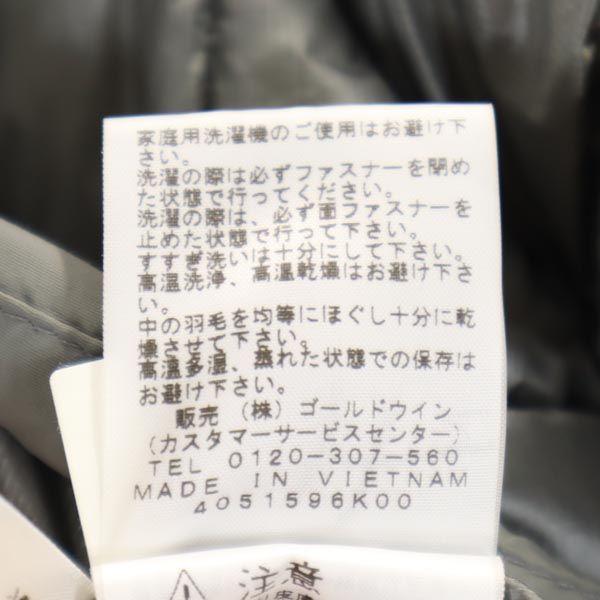 家庭用洗濯機のご使用はお避け下
さい。
洗濯の際は必ずファスナーを閉め
た状態で行ってください。
洗濯の際は、必ず面ファスナーを
止めた状態で行って下さい。
すすぎ洗いは十分にして下さい。
高温洗浄、高温乾燥はお避け下さ
い。
中の羽毛を均等にほぐし十分に乾
燥させて下さい。
高温多湿、蒸れた状態での保存は
お避け下さい。
販売 (株) ゴールドウイン
(カスタマーサービスセンター)
TEL 0120-307-560
MADE IN VIETNAM
4051596K00
注意